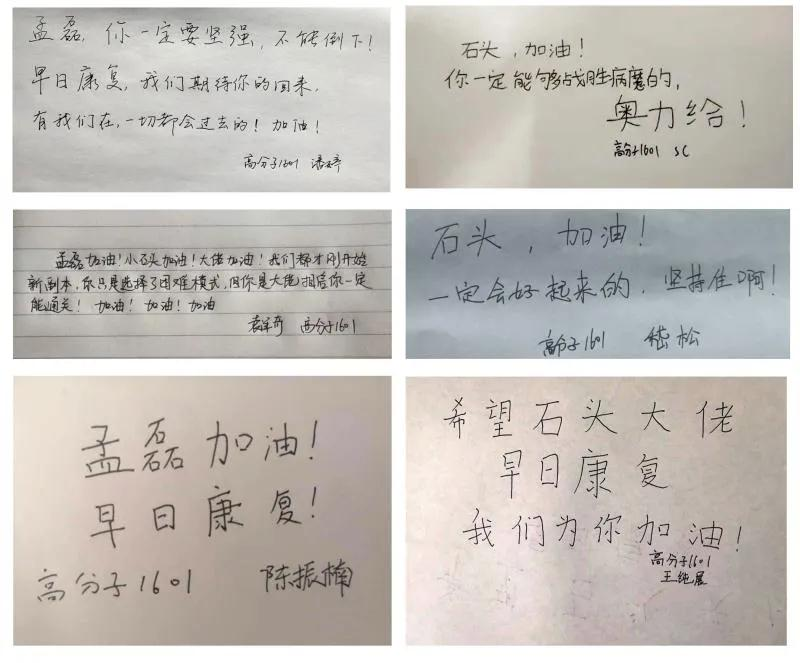 孟磊，你一定要坚强，不能倒下！
早日康复，我们期待你的回来，
有我们在，一切都会过去的！加油！
高分子1601 潘婷
石头，加油！
你一定能够战胜病魔的，
奥力给！
高分子1601 SC
孟磊加油！小石头加油！大佬加油！我们都才刚开始
新副本，你只是选择了困难模式，但你是大佬，相信你一定
能通关！加油！加油！加油
高分子1601
石头，加油！
一定会好起来的，坚持住啊！
高分子1601 嵇松
孟磊加油！
早日康复！
高分子1601 陈振楠
希望石头大佬
早日康复
我们为你加油！
高分子1601
王纯展